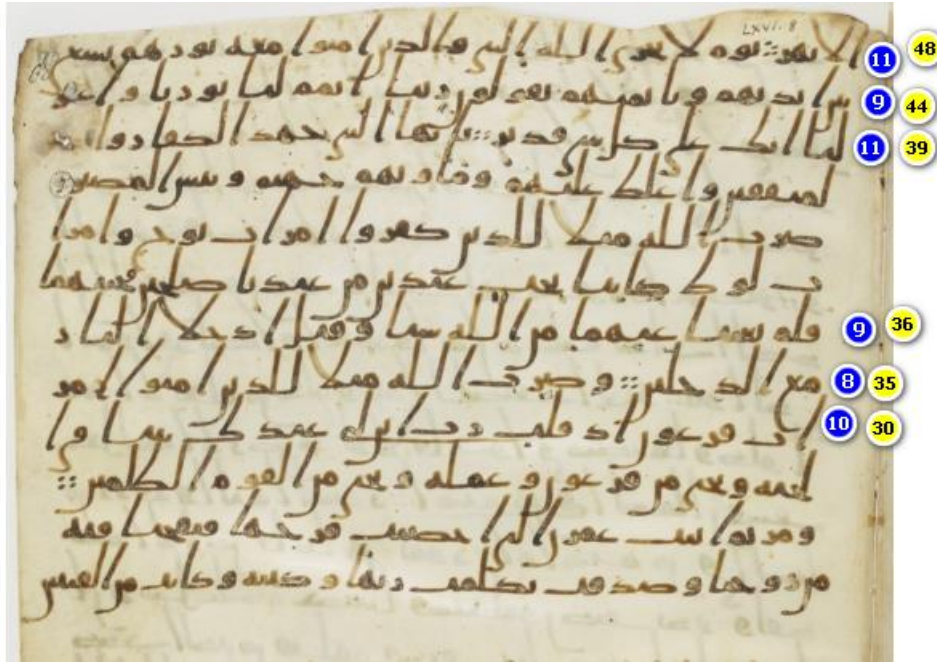 LXVI.8
الانهر يوم لا يخزي الله النبي والذين امنوا معه نورهم يسعى 11 48
بين ايديهم وبايمنهم يقولون ربنا اتمم لنا نورنا واغفر 9 44
لنا انك على كل شي قدير يايها النبي جهد الكفار وا 11 39
لمنفقين واغلظ عليهم وماويهم جهنم وبيس المصير
ضرب الله مثلا للذين كفروا امرات نوح وامرا
ت لوط كانتا تحت عبدين من عبدنا صلحين فخنتهما
فلم يغنيا عنهما من الله شيا وقيل ادخلا النار 9 36
مع الدخلين وضرب الله مثلا للذين امنوا امر 8 35
ات فرعون اذ قلت رب ابن لي عندك بيتا في ا 10 30
لجنه ونجني من فرعون وعمله ونجني من القوم الظلمين
ومريم ابنت عمرن التي احصنت فرجها فنفخنا فيه
من روحنا وصدقت بكلمت ربها وكتبه وكانت من القنتين